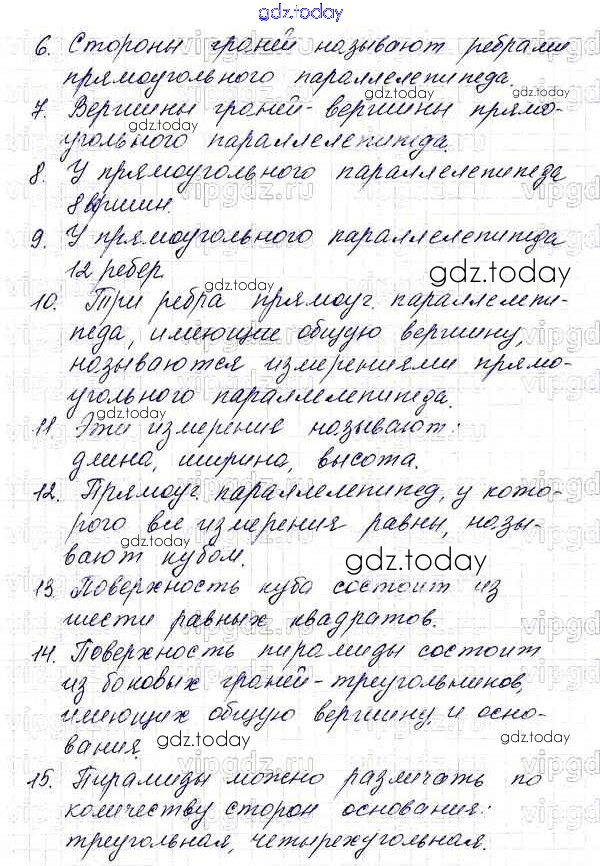 gdz.today
6. Стороны граней называют ребрами
прямоугольного параллелепипеда
gdz.today
7. Вершины граней - вершины прямо-
gdz.today
угольного параллелепипеда.
gdz.today
8. У прямоугольного параллелепипеда
8 вершин.
9. У прямоугольного параллелепипеда
12 ребер
gdz.today
gdz.today
10. Три ребра прямоуг. параллелепи-
педа, имеющие общую вершину,
называются измерениями прямо-
угольного параллелепипеда.
gdz.today
11. Эти измерение называют:
длина, ширина, высота.
12. Прямоуг. параллелепипед, у кото-
рого все измерения равны, назы-
вают кубом.
gdz.today
gdz.today
13. Поверхность куба состоит из
шести равных квадратов.
14. Поверхность пирамиды состоит
из боковых граней - треугольников,
имеющих общую вершину, и осно-
вания
gdz.today
gdz.today
15. Пирамиды можно различать по
количеству сторон основания:
треугольная, четырехугольная.